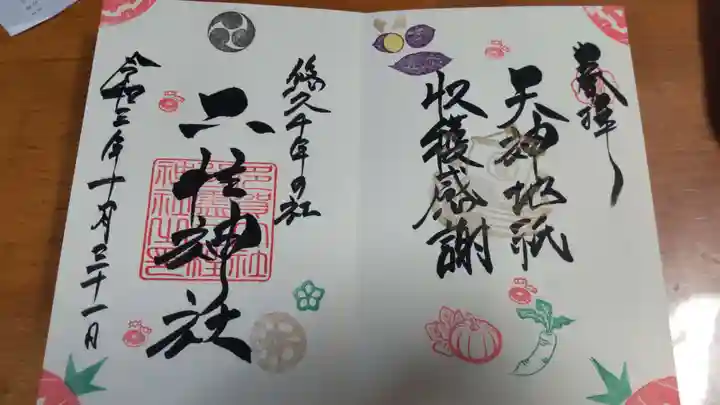 奉拝
天神地祇
収穫感謝
悠久千年の社
六柱神社
令和三年十月三十一日